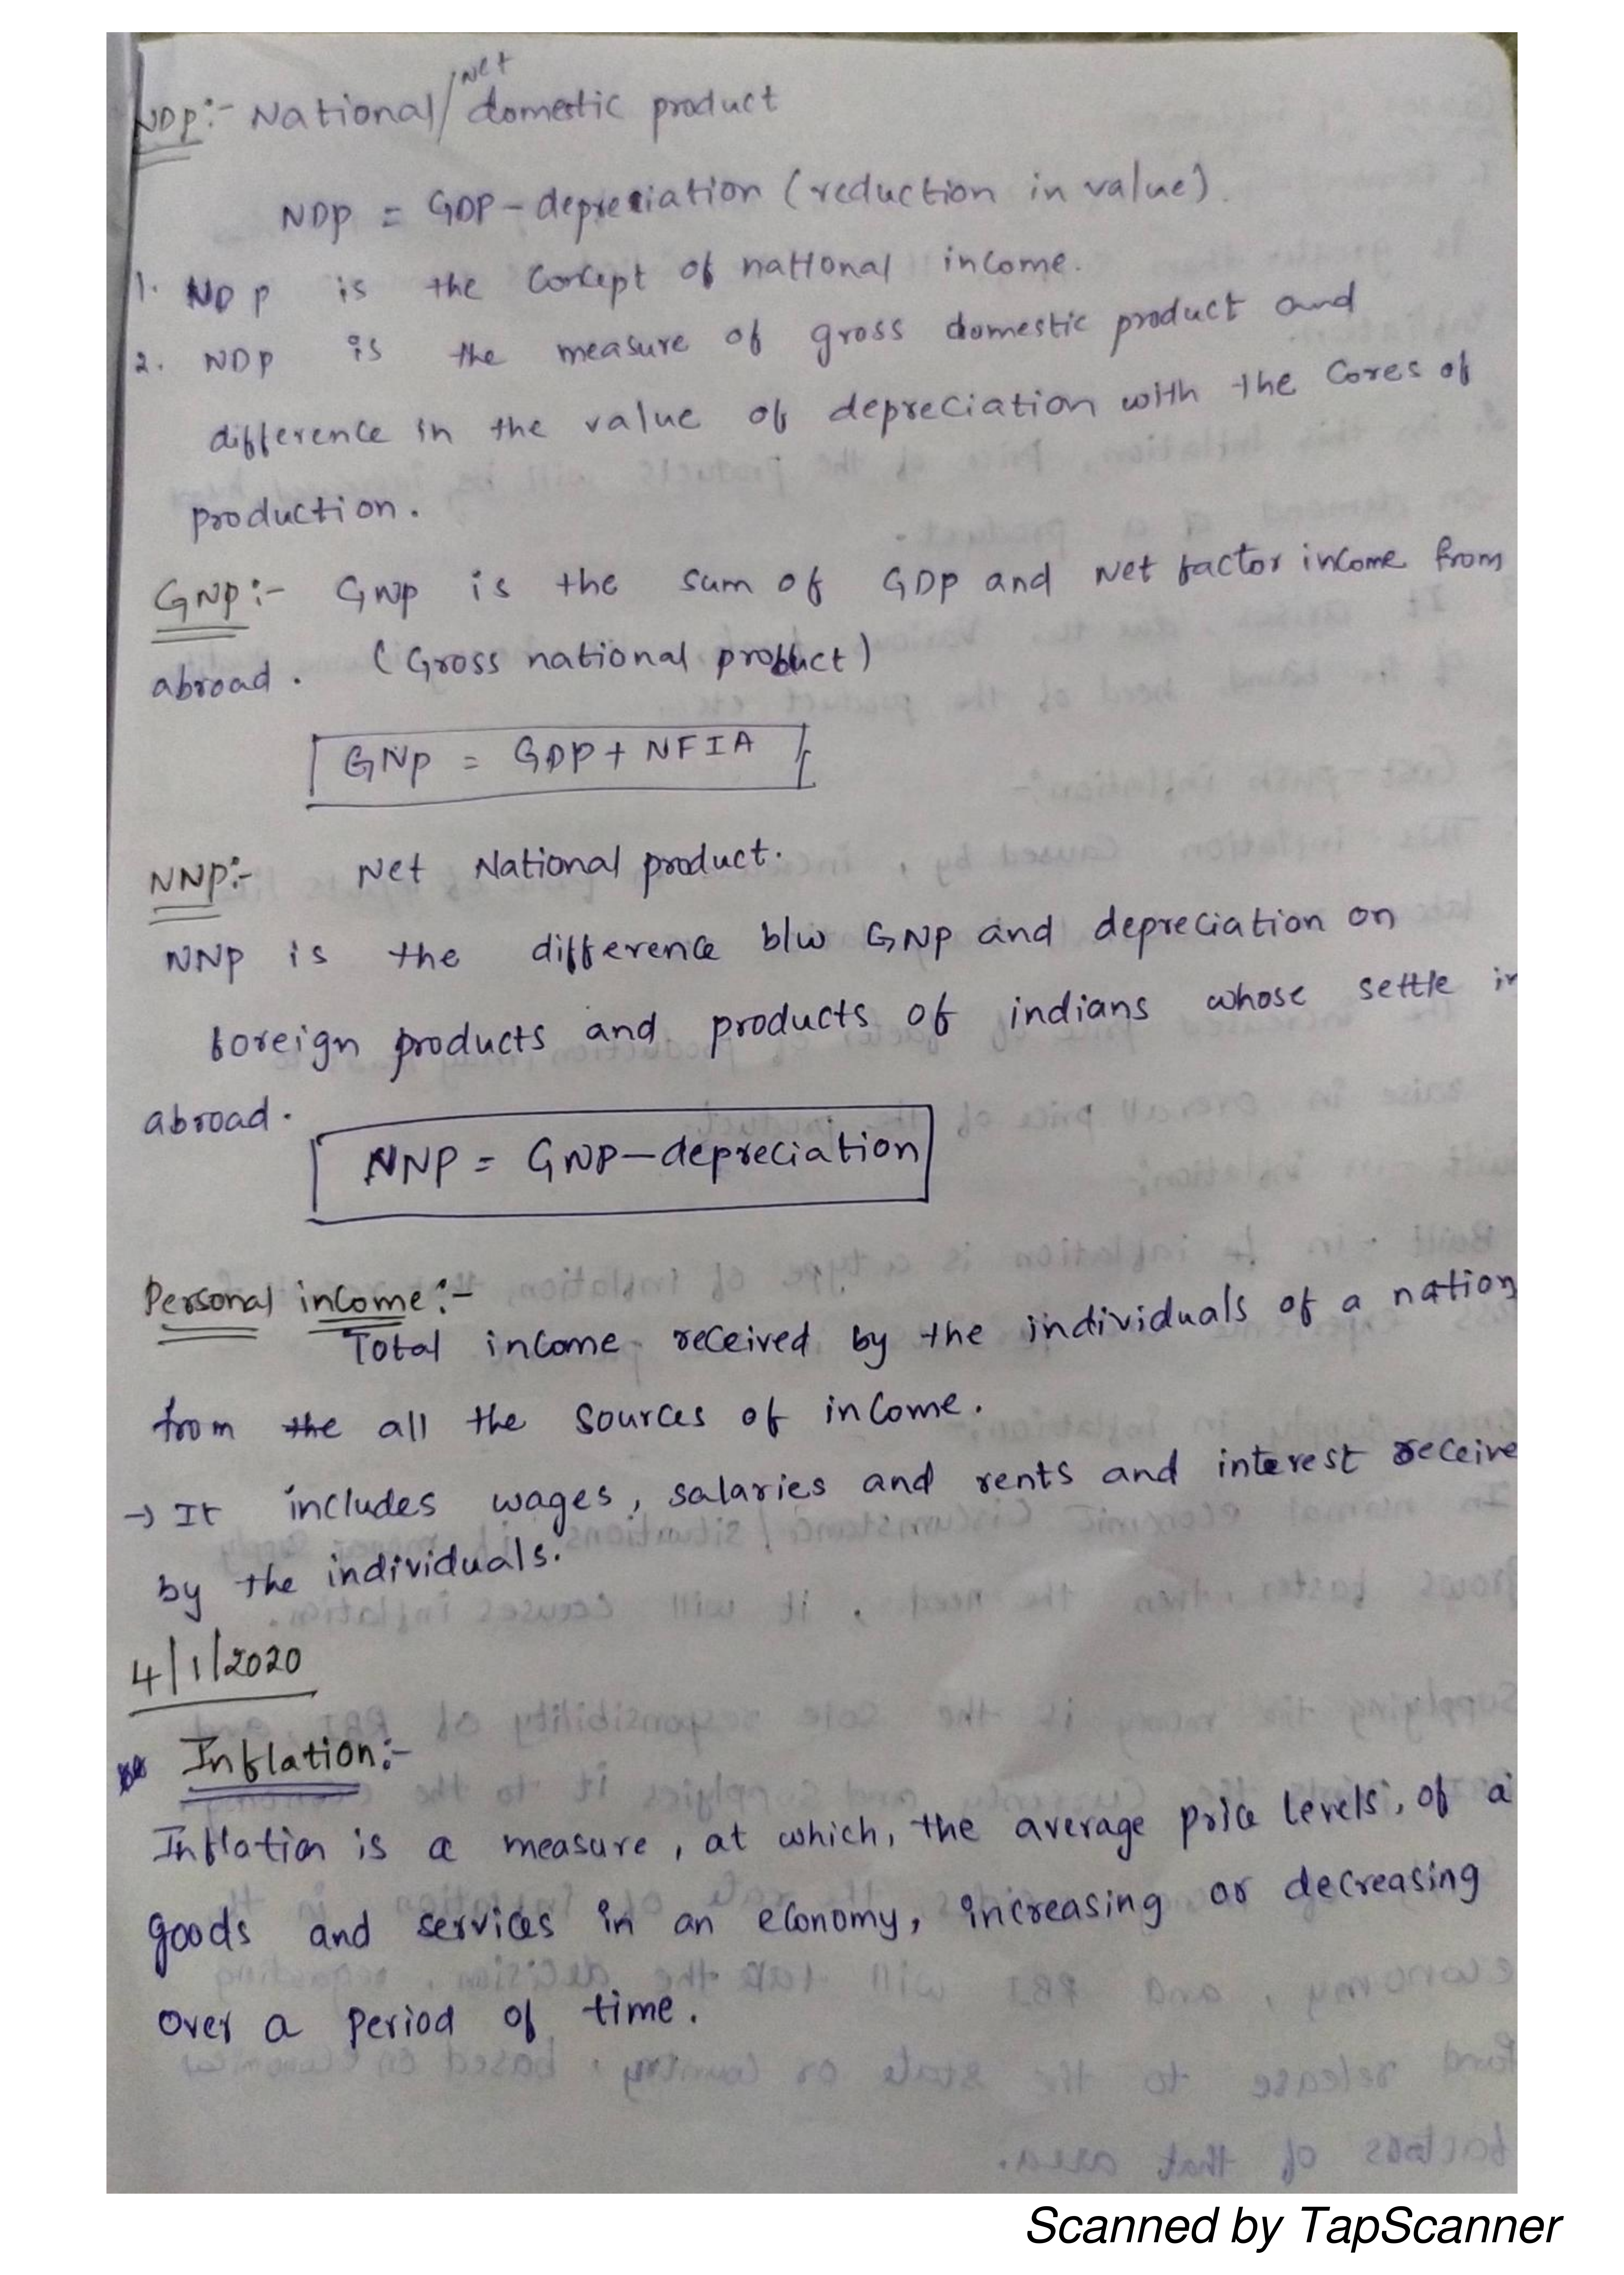 Net
NDP:- National/domestic product
NDP = GDP - depreciation (reduction in value).
1. NDP is the concept of national income.
2. NDP is the measure of gross domestic product and
difference in the value of depreciation with the Cores of
production.
GNP:- GNP is the sum of GDP and Net factor income from
abroad. (Gross national product)
GNP = GDP + NFIA
NNP:- Net National product.
NNP is the difference b/w GNP and depreciation on
foreign products and products of indians whose settle in
abroad.
NNP = GNP - depreciation
Personal income:-
Total income received by the individuals of a nation
from the all the sources of income.
→ It includes wages, salaries and rents and interest receive
by the individuals.
4/1/2020
Inflation:-
Inflation is a measure, at which, the average price levels, of a
goods and services in an economy, increasing or decreasing
over a period of time.
Scanned by TapScanner